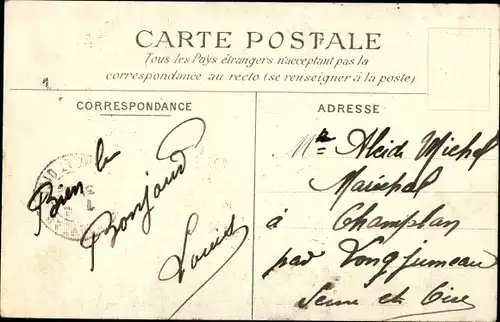 CARTE POSTALE
Tous les Pays étrangers n'acceptant pas la
correspondance au recto (se renseigner à la poste)
CORRESPONDANCE
ADRESSE
Bien le
Bonjour
Louis
Mr Alcide Michel
Maréchal
à Champlan
par Longjumeau
Seine et Oise